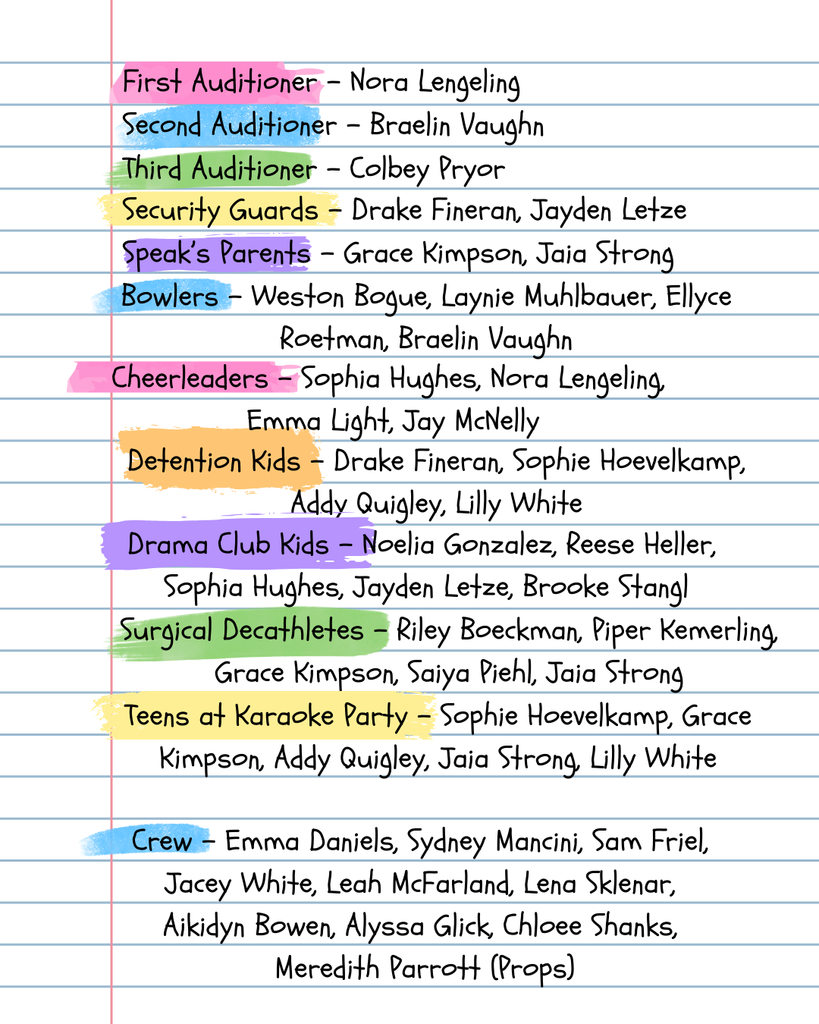 First Auditioner - Nora Lengeling
Second Auditioner - Braelin Vaughn
Third Auditioner - Colbey Pryor
Security Guards - Drake Fineran, Jayden Letze
Speak's Parents - Grace Kimpson, Jaia Strong
Bowlers - Weston Bogue, Laynie Muhlbauer, Ellyce
Roetman, Braelin Vaughn
Cheerleaders - Sophia Hughes, Nora Lengeling,
Emma Light, Jay McNelly
Detention Kids - Drake Fineran, Sophie Hoevelkamp,
Addy Quigley, Lilly White
Drama Club Kids - Noelia Gonzalez, Reese Heller,
Sophia Hughes, Jayden Letze, Brooke Stangl
Surgical Decathletes - Riley Boeckman, Piper Kemerling,
Grace Kimpson, Saiya Piehl, Jaia Strong
Teens at Karaoke Party - Sophie Hoevelkamp, Grace
Kimpson, Addy Quigley, Jaia Strong, Lilly White
Crew - Emma Daniels, Sydney Mancini, Sam Friel,
Jacey White, Leah McFarland, Lena Sklenar,
Aikidyn Bowen, Alyssa Glick, Chloee Shanks,
Meredith Parrott (Props)